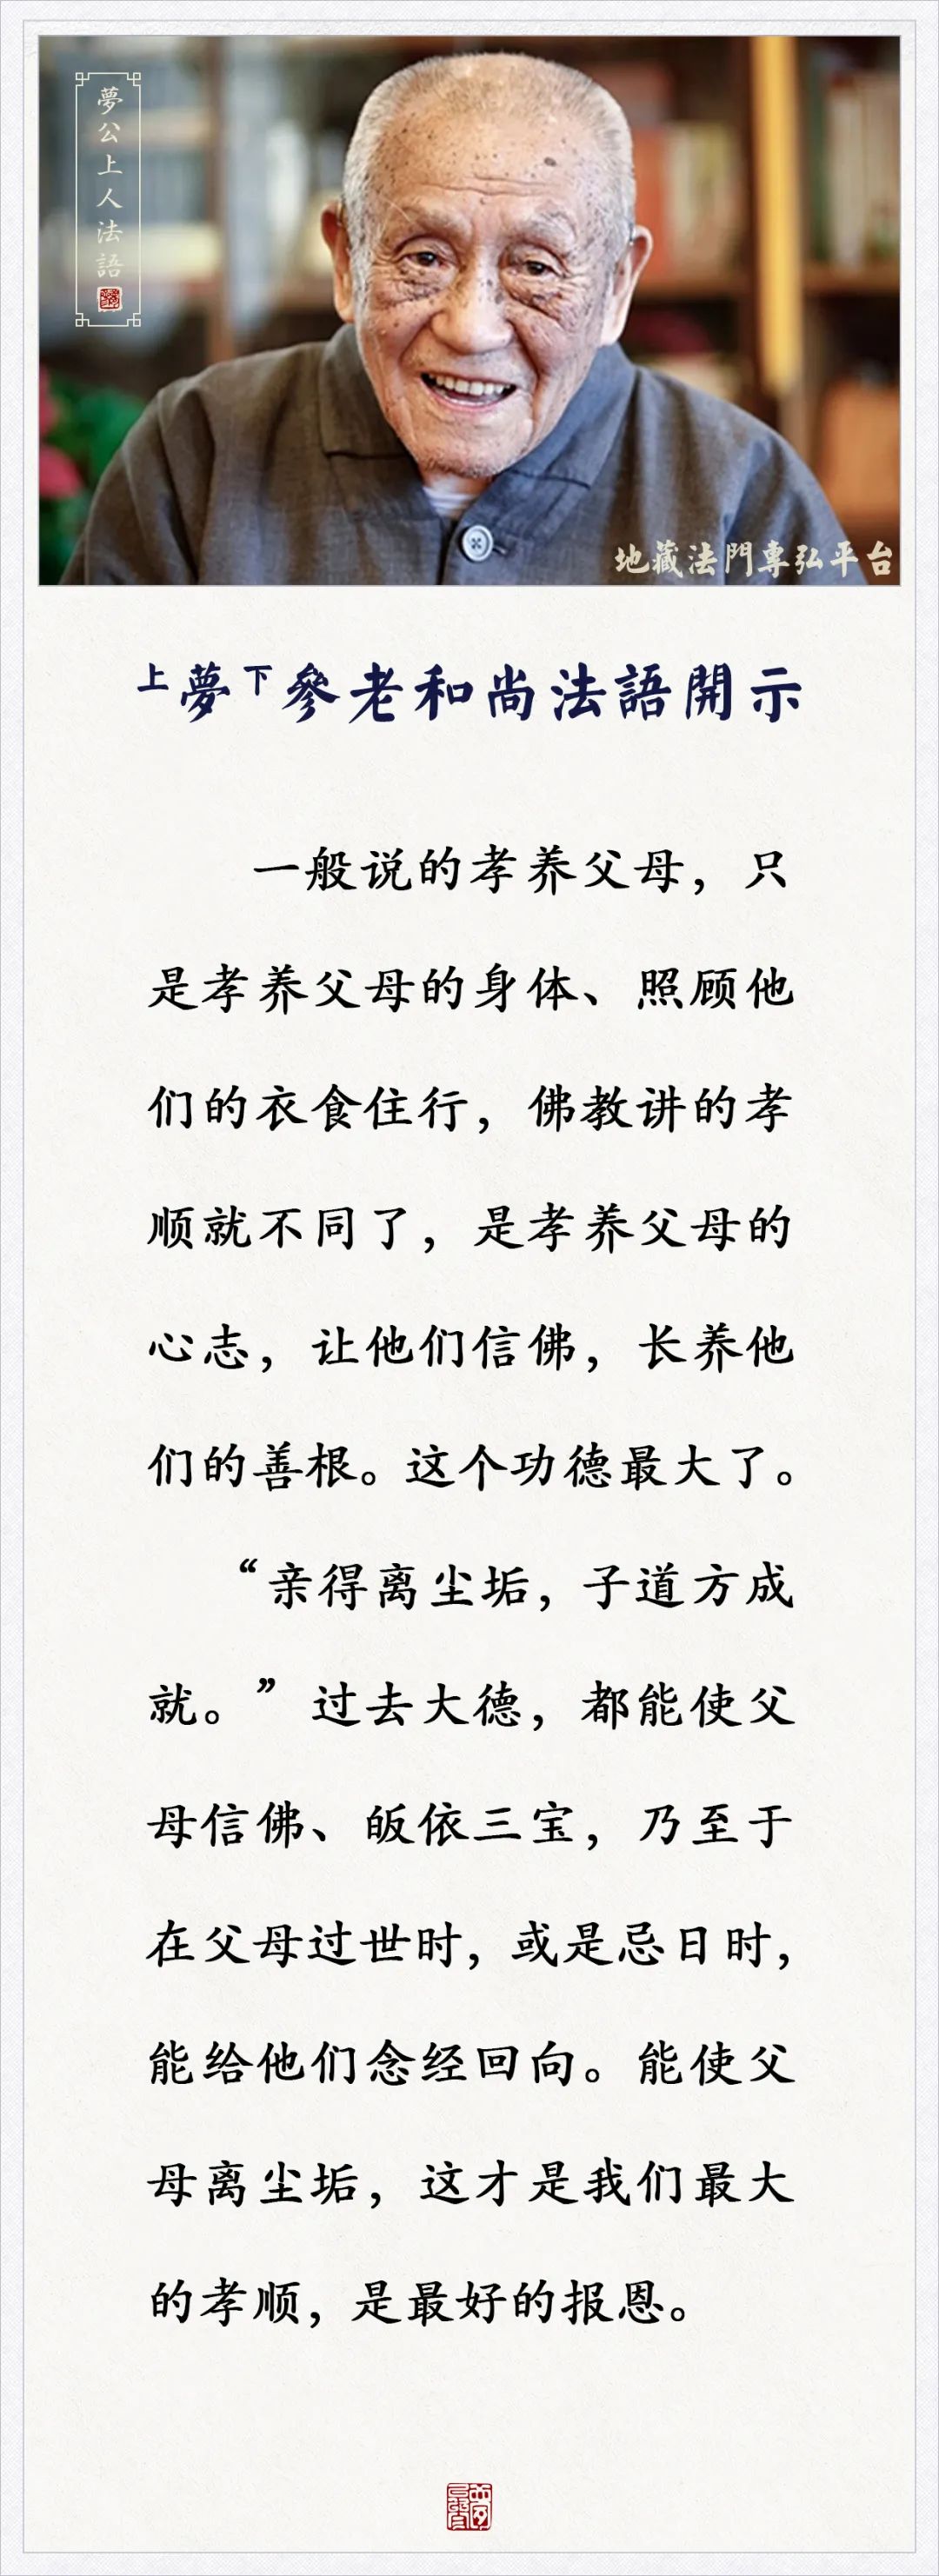 夢公上人法語
地藏法門專弘平台
上夢下參老和尚法語開示
一般说的孝养父母，只
是孝养父母的身体、照顾他
们的衣食住行，佛教讲的孝
顺就不同了，是孝养父母的
心志，让他们信佛，长养他
们的善根。这个功德最大了。
“亲得离尘垢，子道方成
就。”过去大德，都能使父
母信佛、皈依三宝，乃至于
在父母过世时，或是忌日时，
能给他们念经回向。能使父
母离尘垢，这才是我们最大
的孝顺，是最好的报恩。